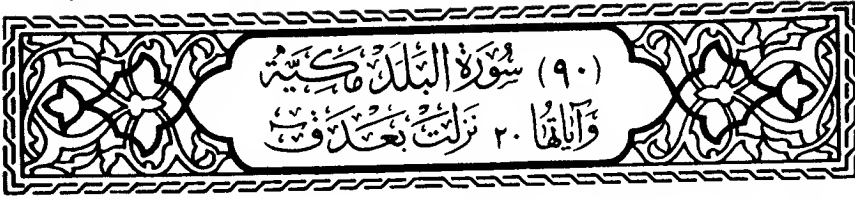 (٩٠) سُورَةُ الْبَلَدِ مَكِيَّةٌ
وَآيَاتُهَا ٢٠ نَزَلَتْ بَعْدَ قٓ